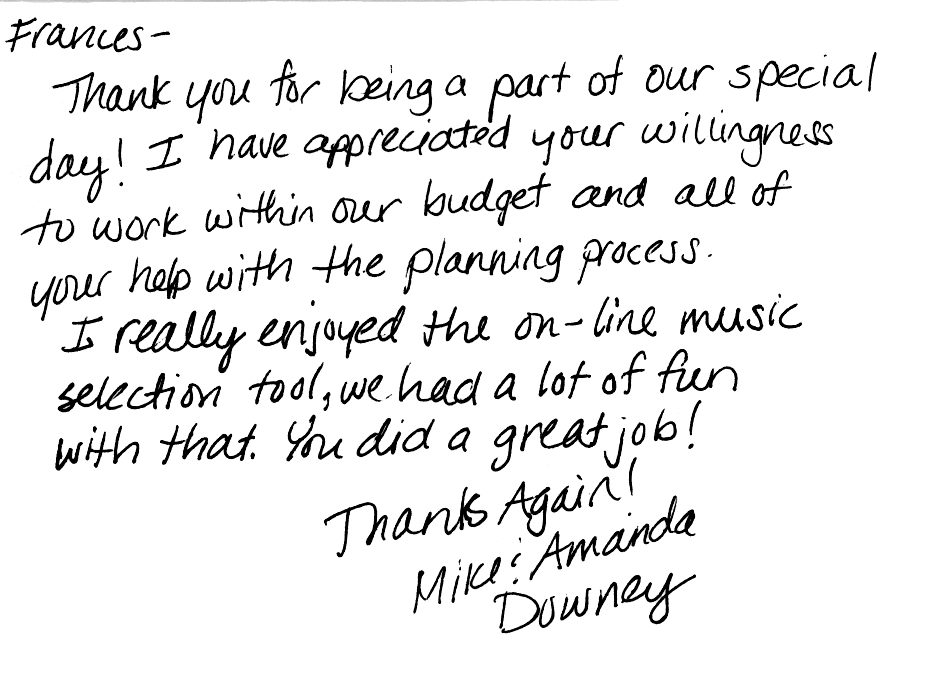 Frances-
Thank you for being a part of our special
day! I have appreciated your willingness
to work within our budget and all of
your help with the planning process.
I really enjoyed the on-line music
selection tool, we had a lot of fun
with that. You did a great job!
Thanks Again!
Mike & Amanda
Downey